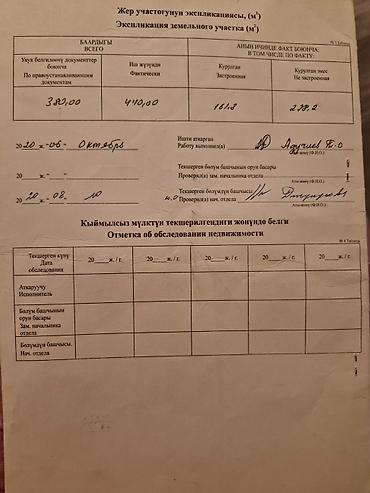 Жер участогунун экспликациясы, (м²)
Экспликация земельного участка (м²)
№ 3 Таблица
БААРДЫГЫ
ВСЕГО
АНЫН ИЧИНДЕ ФАКТ БОЮНЧА:
В ТОМ ЧИСЛЕ ПО ФАКТУ:
Укук белгилөөчү документтер боюнча
По правоустанавливающим документам
Иш жүзүндө
Фактически
Курулган
Застроенная
Курулган эмес
Не застроенная
380,00
440,00
161.8
278,2
2020 ж. "06" Октябрь
Ишти аткарган
Работу выполнил(а)
Аты-жөнү (Ф.И.О.)
20 ж. " "
Текшерген бөлүм башчынын орун басары
Проверил(а) зам. начальника отдела
Аты-жөнү (Ф.И.О.)
2020 ж. "08" 10
Текшерген бөлүмдүн башчысы
Проверил(а) нач. отдела
Аты-жөнү (Ф.И.О.)
Кыймылсыз мүлктүн текшерилгендиги жөнүндө белги
Отметка об обследовании недвижимости
№ 4 Таблица
Текшерген күнү
Дата обследования
20 ж. / г.
20 ж. / г.
20 ж. / г.
20 ж. / г.
20 ж. / г.
Аткаруучу
Исполнитель
Бөлүм башчынын орун басары
Зам. начальника отдела
Бөлүмдүн башчысы.
Нач. отдела